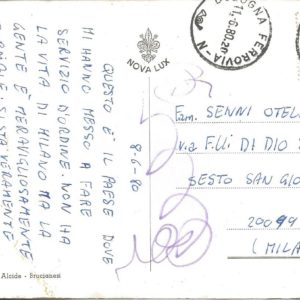 8-6-80
QUESTO È IL PAESE DOVE
MI HANNO MESSO A FARE
SERVIZIO D'ORDINE. NON HA
LA VITA DI MILANO MA LA
GENTE È MERAVIGLIOSAMENTE
SI STA VERAMENTE
NOVA LUX
BOLOGNA FERROVIA
11-6-80 20
Fam. SENNI OTEL
Via F.lli DI DIO
SESTO SAN GIO
20099
(MILA
Alcide - Brucianesi